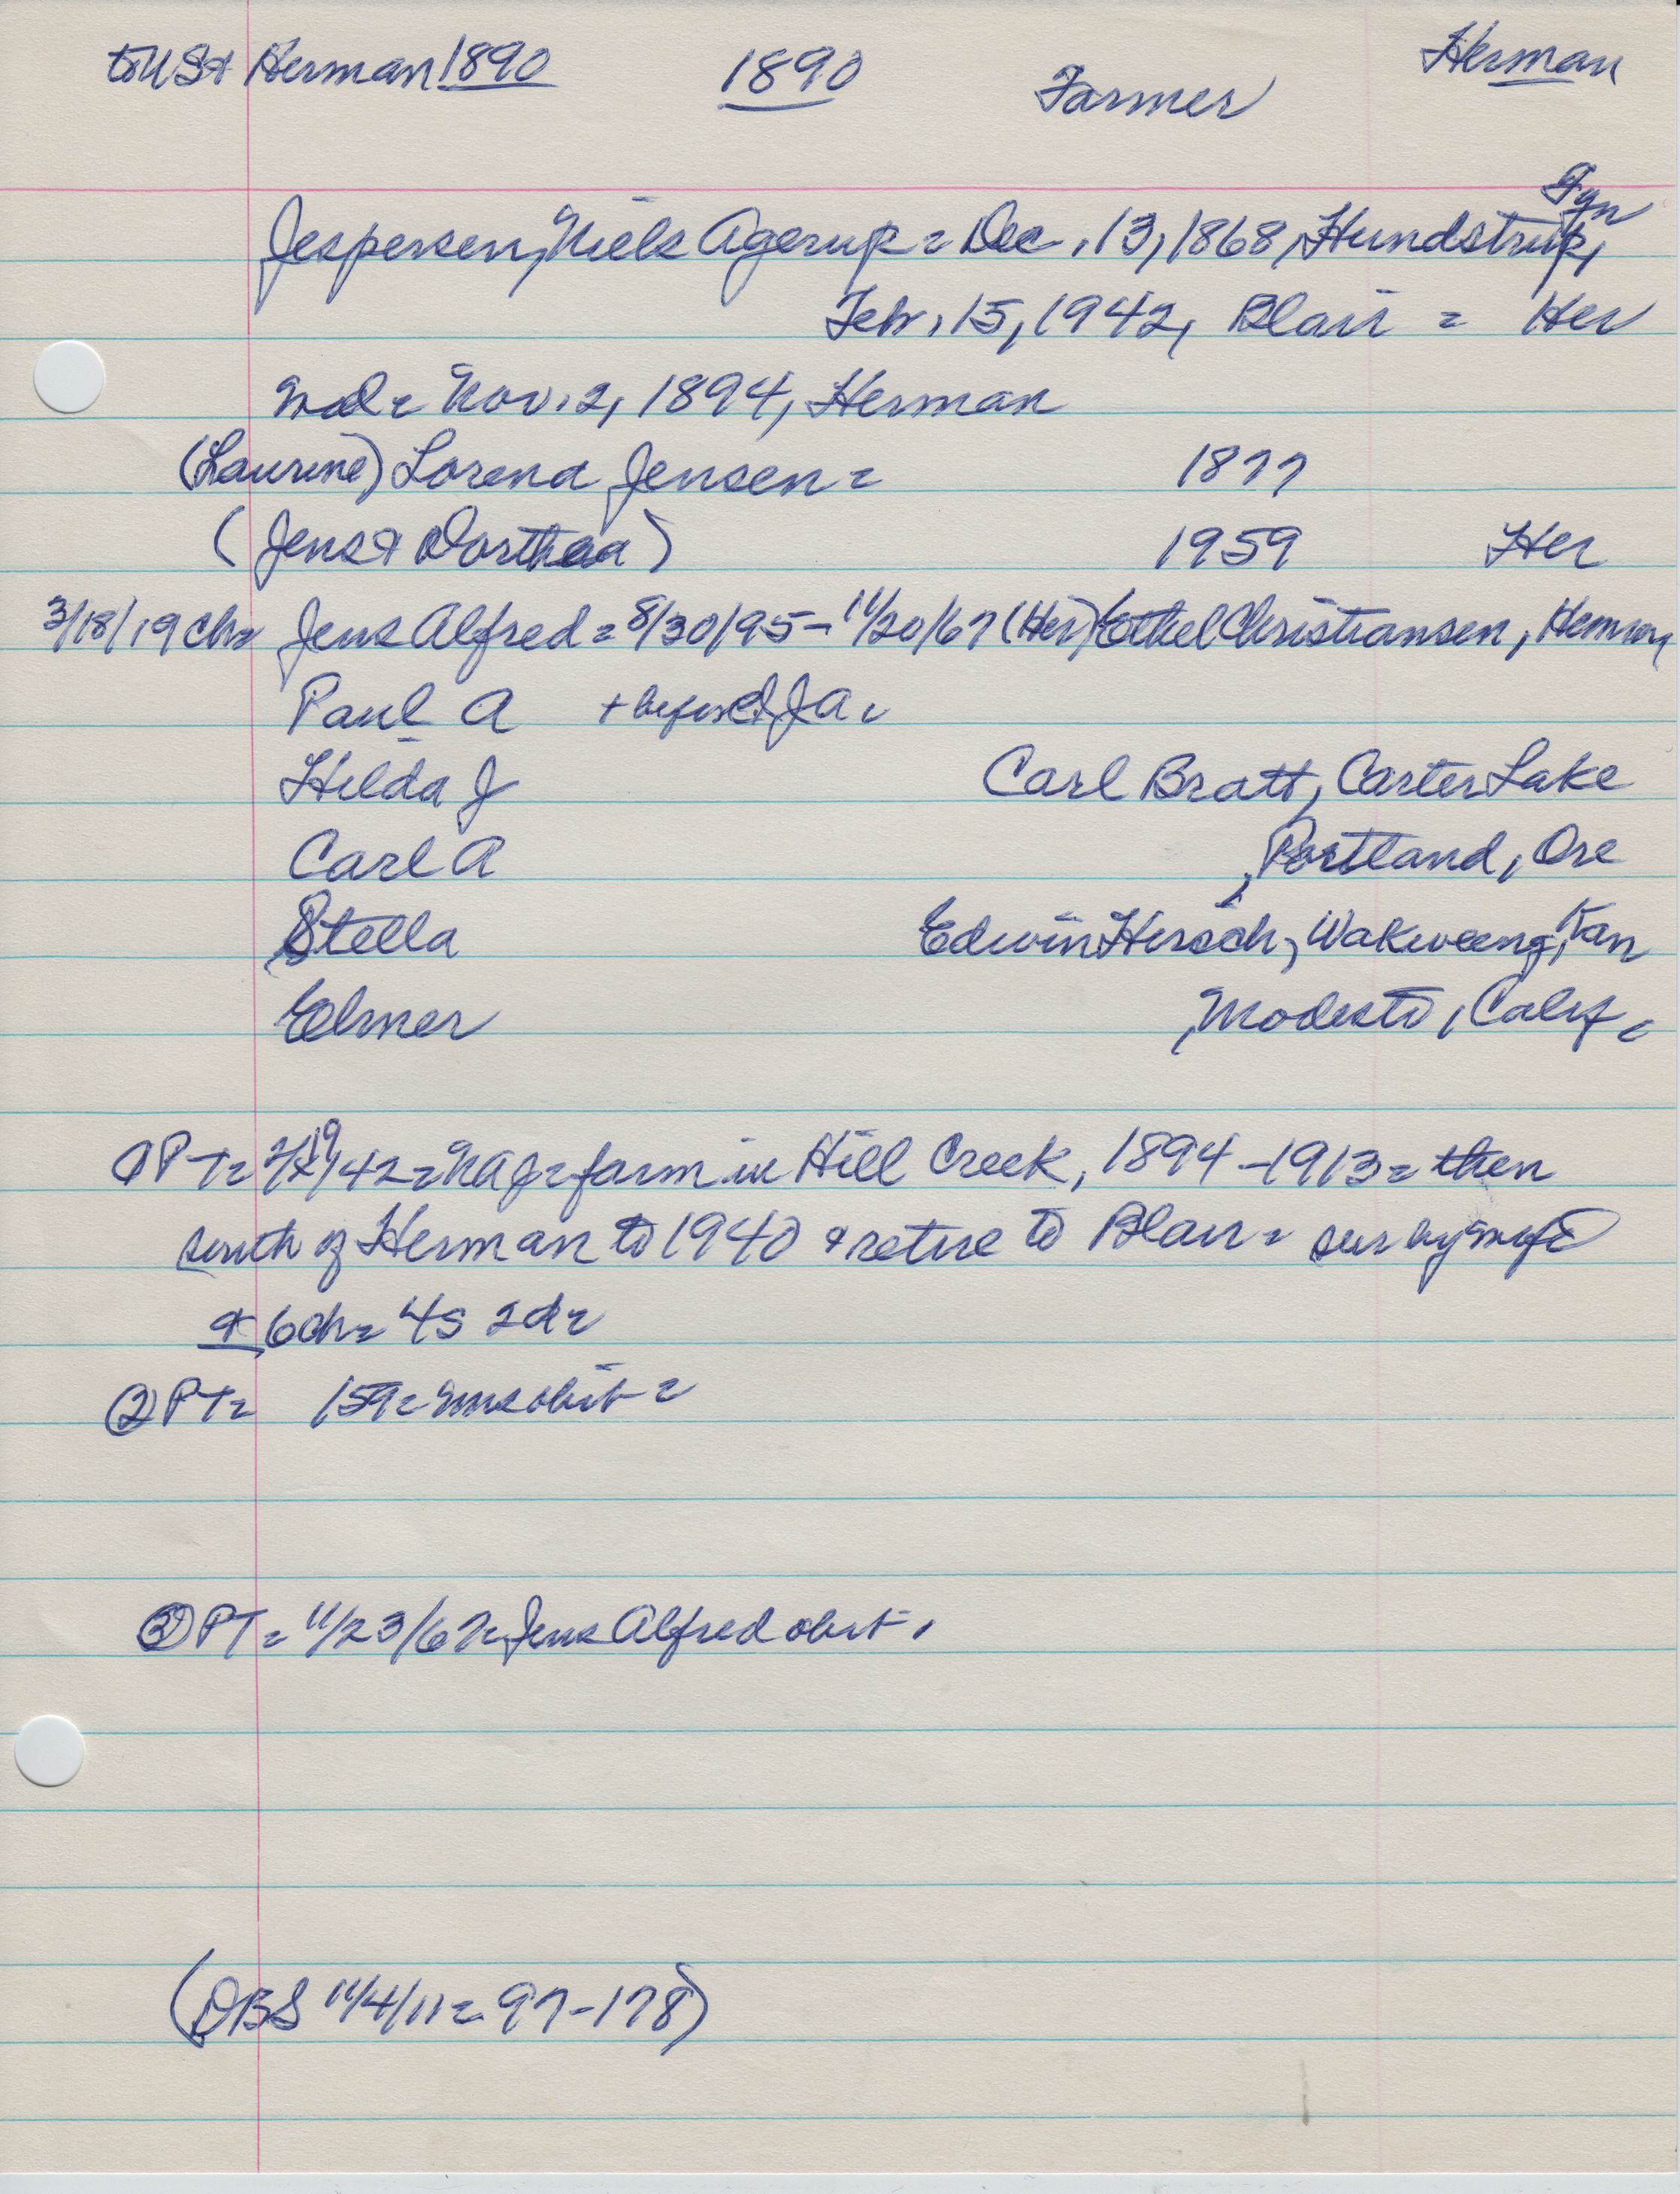 to US & Herman 1890 1890 Farmer Herman
Fyn
Jespersen, Niels Agerup = Dec. 13, 1868, Hundstrup,
Feb. 15, 1942, Blair = Her
md = Nov. 2, 1894, Herman
(Laurine) Lorena Jensen = 1877
(Jens & Dorthea) 1959 Her
3/18/19 ch = Jens Alfred = 8/30/95 - 11/20/67 (Her) Ethel Christiansen, Herman
Paul A + before J A.
Hilda J Carl Bratt, Carter Lake
Carl A , Portland, Ore
Stella Edwin Hirsch, Wakweeng, Kan
Elmer , Modesto, Calif.
① PT = 2/19/42 = NAJ = farm in Hill Creek, 1894 - 1913 = then
south of Herman to 1940 & retire to Blair = sur by wife
& 6 ch = 4s 2d =
② PT = 159 = Mrs obit =
③ PT = 11/23/67 = Jens Alfred obit.
(DBS 11/4/11 = 97-178)